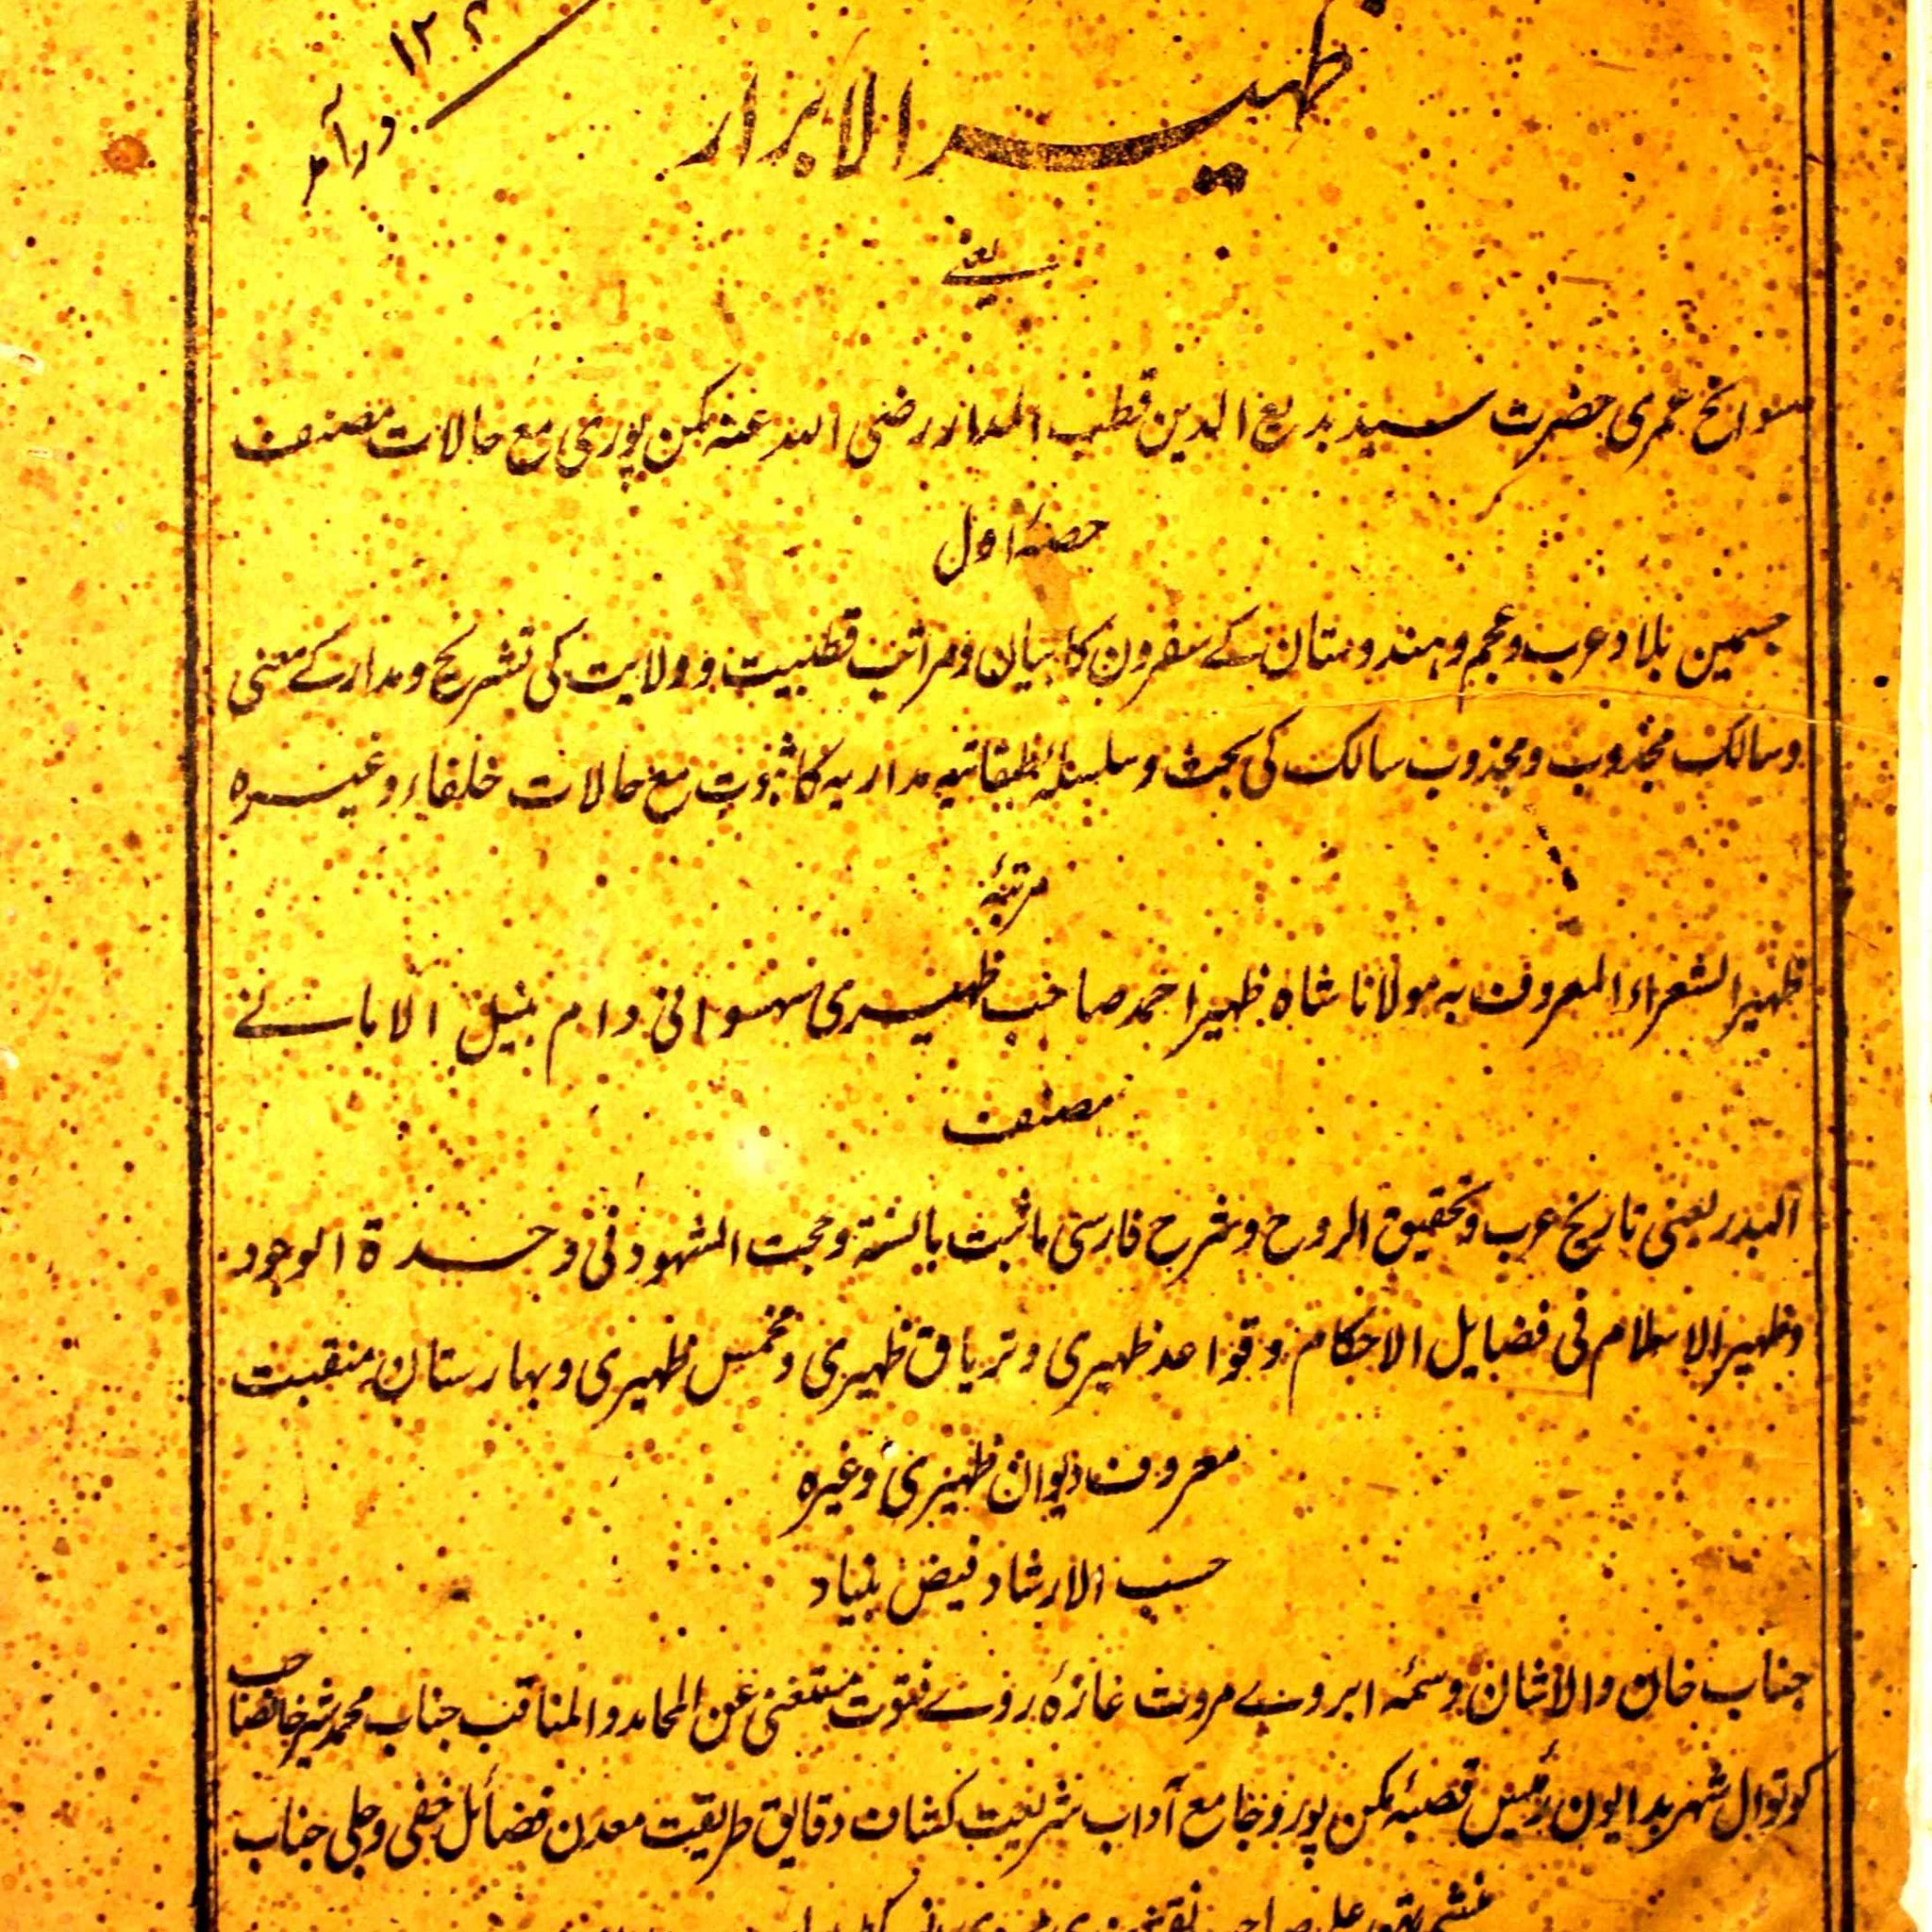 ۱۲۰۲
ظہیر الابرار
یعنے
سوانح عمری حضرت سید بدیع الدین قطب المدار رضی اللہ عنہ مکن پوری مع حالات مصنف
حصۂ اول
جسمین بلاد عرب و عجم و ہندوستان کے سفرون کا بیان و مراتب قطبیت و ولایت کی تشریح و مدار کے معنی
و سالک مجذوب و مجذوب سالک کی بحث و سلسلہ طیفاتیہ مداریہ کا ثبوت مع حالات خلفاء وغیرہ
مرتبۂ
ظہیر الشعراء المعروف بہ مولانا شاہ ظہیر احمد صاحب ظہیری سہسوانی دام بنیل الامانے
مصنف
البدر یعنی تاریخ عرب و تحقیق الروح و شرح فارسی ماثبت بالسنۃ و حجت الشہود فی وحدۃ الوجود
و ظہیر الاسلام فی فضایل الاحکام و قواعد ظہیری و تریاق ظہیری و مخمس ظہیری و بہارستان منقبت
معروف دیوان ظہیری وغیرہ
حسب الارشاد فیض بنیاد
جناب خان والاشان وسمۂ ابروے مروت غازۂ روے فتوت مستغنی عن المحامد والمناقب جناب محمد شیر خانصاحب
کوتوال شہر بدایون رئیس قصبۂ مکن پور و جامع آداب شریعت کشاف دقایق طریقت معدن فضائل خفی و جلی جناب